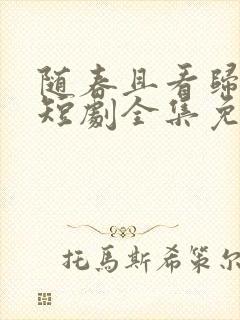 随春且看歸
短劇全集免
托馬斯希策尔